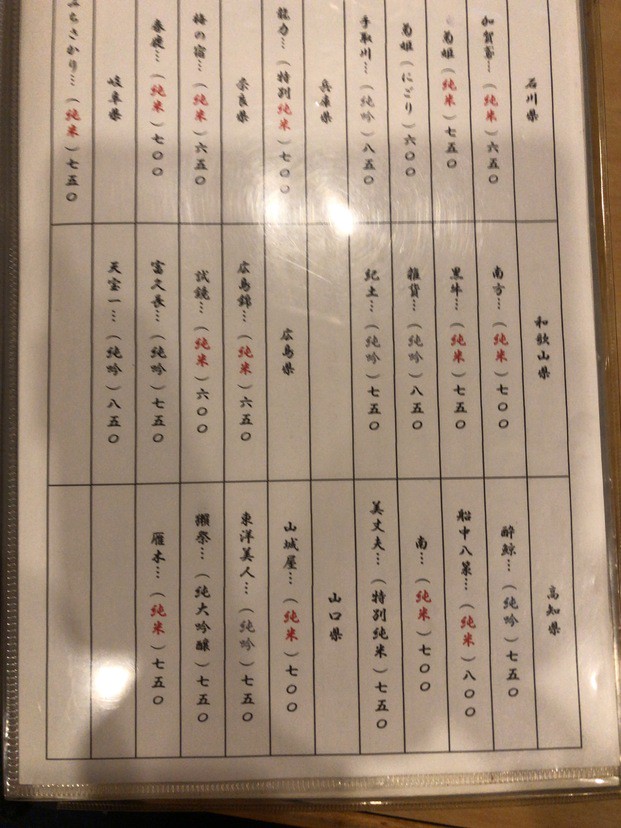 石川県
加賀鳶…(純米)六五〇
菊姫(純米)七五〇
菊姫(にごり)六〇〇
手取川…(純吟)八五〇
兵庫県
龍力…(特別純米)七〇〇
奈良県
梅の宿…(純米)六五〇
春鹿…(純米)七〇〇
岐阜県
みちさかり…(純米)七五〇
和歌山県
南方…(純米)七〇〇
黒牛…(純米)七五〇
雑賀…(純吟)八五〇
紀土…(純吟)七五〇
広島県
広島錦…(純米)六五〇
試鏡…(純米)六〇〇
富久長…(純吟)七五〇
天宝一…(純吟)八五〇
高知県
酔鯨…(純吟)七五〇
船中八策…(純米)八〇〇
南…(純米)七〇〇
美丈夫…(特別純米)七五〇
山口県
山城屋…(純米)七〇〇
東洋美人…(純吟)七五〇
獺祭…(純大吟醸)七五〇
雁木…(純米)七五〇